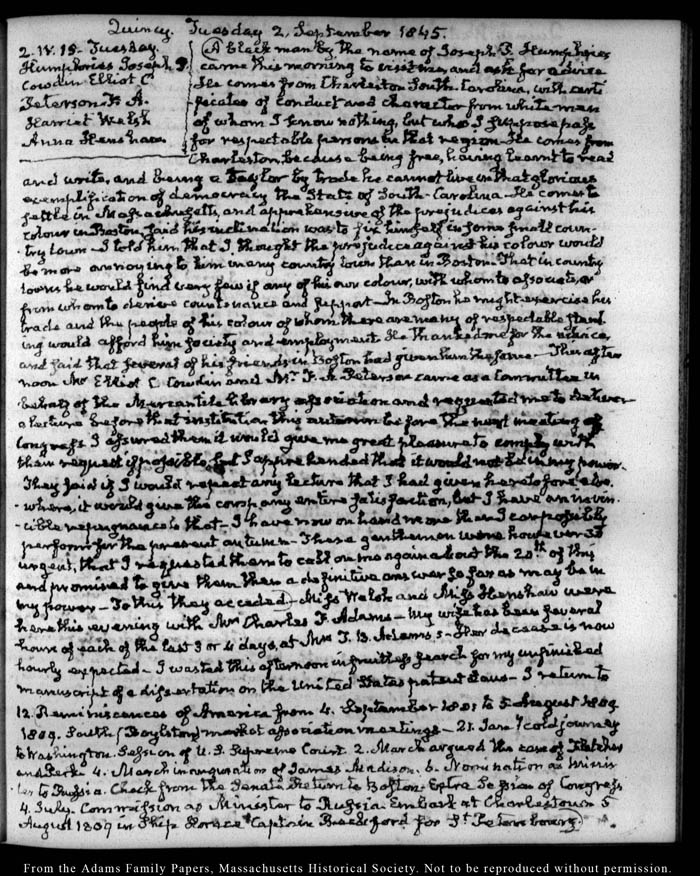 Quincy. Tuesday 2. September 1845.
2. IV. 15. Tuesday.
Humphries Joseph P.
Cowdin Elliot C
Peterson F. A.
Harriet Welsh
Anna Henshaw
A black man by the name of Joseph P. Humphries
came this morning to visit me, and ask for advice
He comes from Charleston South-Carolina, with certi
ficates of conduct and character from white men
of whom I know nothing, but who I suppose pass
for respectable persons in that region. He comes from
Charleston, because being free, having learnt to read
and write, and being a taylor by trade he cannot live in that glorious
exemplification of democracy the State of South-Carolina. He comes to
settle in Massachusetts, and apprehensive of the prejudices against his
colour in Boston, said his inclination was to fix himself in some small coun-
try town. I told him that I thought the prejudice against his colour would
be more annoying to him in any country town than in Boston. That in country
towns he would find very few if any of his own colour, with whom to associate, or
from whom to derive countenance and support. In Boston he might exercise his
trade and the people of his colour of whom there are many of respectable stand
ing would afford him society and employment. He thanked me for the advice,
and said that several of his friends in Boston had given him the same. This after
noon Mr Elliot C. Cowdin and Mr. F. A. Peterson came as a Committee in
behalf of the Mercantile library association and requested me to deliver
a lecture before that institution this autumn before the next meeting of
Congress. I assured them it would give me great pleasure to comply with
their request if possible, but I apprehended that it would not be in my power.
They said if I would repeat any lecture that I had given heretofore else-
-where, it would give the company entire satisfaction, but I have an invin-
cible repugnance to that. I have now on hand more than I can possibly
perform for the present autumn. These gentlemen were however so
urgent, that I requested them to call on me again about the 20th of
and promised to give them then a definitive answer so far as may be in
my power. To this they acceded. Miss Welsh and Miss Henshaw were
here this evening with Mrs Charles F. Adams. My wife has been several
hours of each of the last 3 or 4 days, at Mrs T. B. Adams's. Her decease is now
hourly expected. I wasted this afternoon in fruitless search for my unfinished
manuscript of a dissertation on the United States patent laws. I return to
12. Reminiscences of America from 4. September 1801 to 5 August 1809
1809. South (Boylston) market association meetings. 21. Jany cold journey
to Washington. Session of U.S. Supreme Court. 2. March argued the case of Fletcher
and Peck. 4. March inauguration of James Madison. 6. Nomination as Minis
ter to Russia. Check from the Senate. Return to Boston. Extra Session of Congress
4. July. Commission as Minister to Russia. Embark at Charlestown 5
August 1809 in Ship Horace Captain Beckford for St Petersbourg.
From the Adams Family Papers, Massachusetts Historical Society. Not to be reproduced without permission.